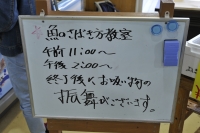 魚のさばき方教室
午前 11:00〜
午後 2:00〜
終了後、お吸い物の
振舞がございます。